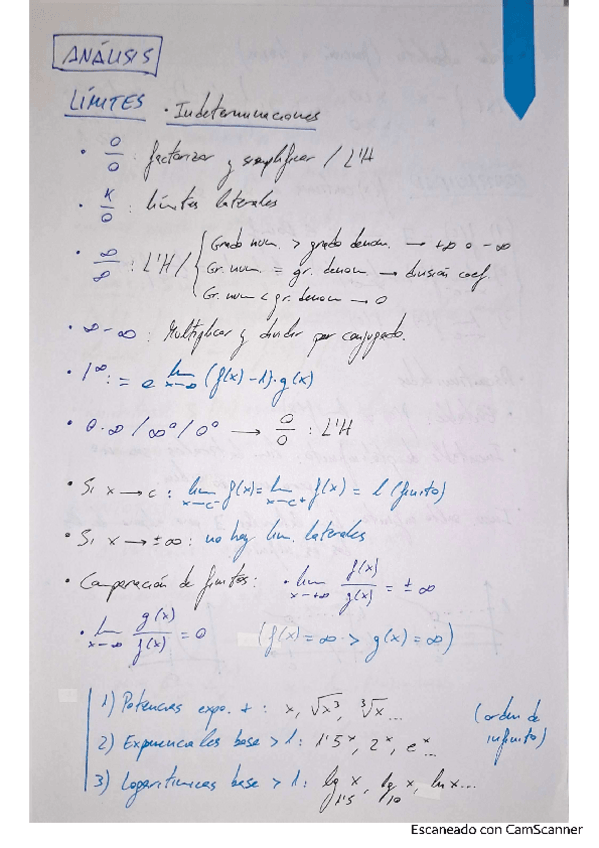 ANÁLISIS
LÍMITES · Indeterminaciones
· 0/0 : factorizar y simplificar / L'H
· K/0 : límites laterales
· ∞/∞ : L'H / { Grado num. > grado denom. → +∞ o -∞
Gr. num. = gr. denom → división coef.
Gr. num < gr. denom → 0
· ∞-∞ : Multiplicar y dividir por conjugado.
· 1^∞ : = e lim x→∞ (f(x)-1)·g(x)
· 0·∞ / ∞⁰ / 0⁰ → 0/0 : L'H
· Si x→c : lim x→c⁻ f(x) = lim x→c⁺ f(x) = l (finito)
· Si x→±∞ : no hay lim. laterales
· Comparación de finitos: · lim x→+∞ f(x)/g(x) = ±∞
· lim x→∞ g(x)/f(x) = 0 (f(x) = ∞ > g(x) = ∞)
1) Potencias expo. + : x, √x³, ∛x... (orden de
2) Exponenciales base > 1 : 1'5ˣ, 2ˣ, eˣ... infinito)
3) Logarítmicas base > 1 : lg 1'5 x, lg 10 x, ln x...
Escaneado con CamScanner